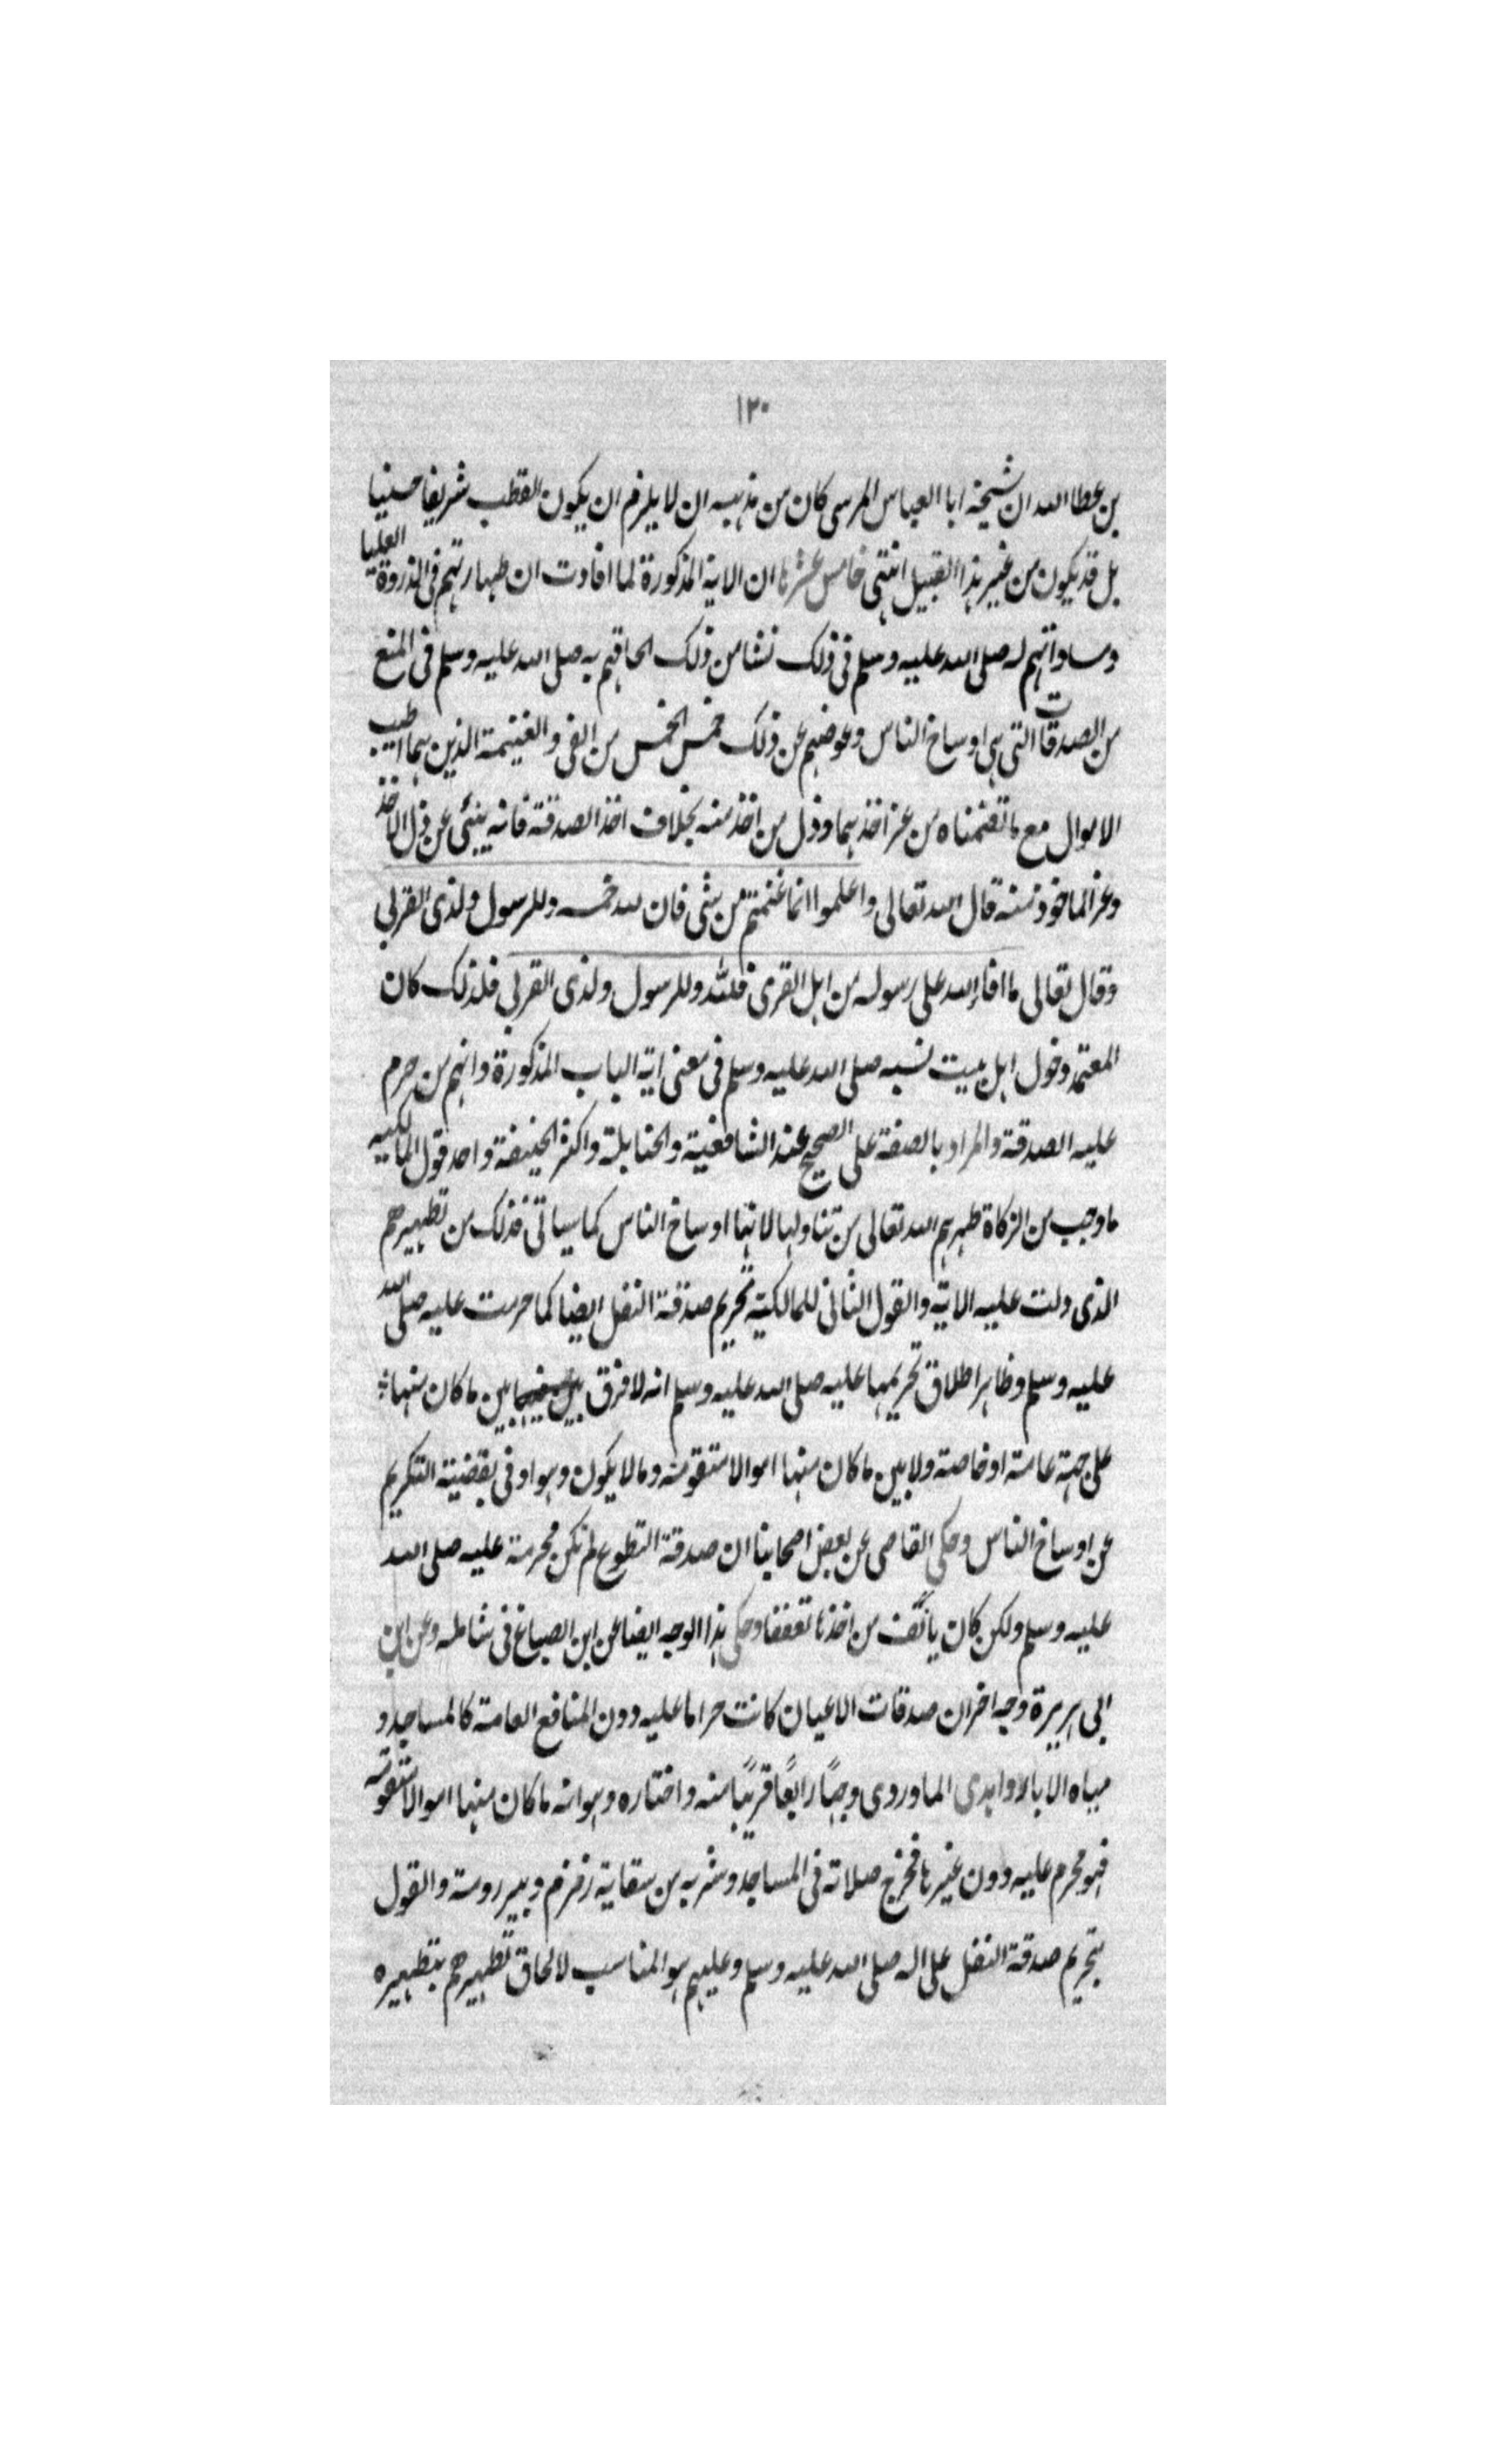 ١٣٠
بن عطا الله ان شيخه ابا العباس المرسى كان من مذهبه ان لا يلزم ان يكون القطب شريفا حسنيا
بل قد يكون من غير هذا القبيل انتهى خامس عشرها ان الاية المذكورة لما افادت ان طهارتهم فى الذروة العليا
ومساواتهم له صلى الله عليه وسلم فى ذلك نشا من ذلك الحاقهم به صلى الله عليه وسلم فى المنع
من الصدقات التى هى اوساخ الناس وعوضهم عن ذلك خمس الخمس من الفى والغنيمة الذين هما اطيب
الاموال مع ما تضمناه من عز اخذهما وذل من اخذ منه بخلاف اخذ الصدقة فانه ينبئى عن ذل الاخذ
وعز الماخوذ منه قال الله تعالى واعلموا انما غنمتم من شى فان لله خمسه وللرسول ولذى القربى
وقال تعالى ما افاء الله على رسوله من اهل القرى فلله وللرسول ولذى القربى فلذلك كان
المعتمد دخول اهل بيت نسبه صلى الله عليه وسلم فى معنى اية الباب المذكورة وانهم من حرم
عليه الصدقة والمراد بالصدقة على الصحيح عند الشافعية والحنابلة واكثر الحنيفة واحد قول المالكيه
ما وجب من الزكاة طهرهم الله تعالى من تناولها لانها اوساخ الناس كما سياتى فذلك من تطهيرهم
الذى دلت عليه الاية والقول الثانى للمالكية تحريم صدقة النفل ايضا كما حرمت عليه صلى الله
عليه وسلم وظاهر اطلاق تحريمها عليه صلى الله عليه وسلم انه لا فرق بين ما كان منها
على جهة عامة او خاصة ولا بين ما كان منها اموالا متقومة وما لا يكون وهو اوفى بقضية التكريم
عن اوساخ الناس وحكى القاضى عن بعض اصحابنا ان صدقة التطوع لم تكن محرمة عليه صلى الله
عليه وسلم ولكن كان يانف من اخذها تعففا وحكى هذا الوجه ايضا عن ابن الصباغ فى شامله وعن ابن
ابى هريرة وجه اخر ان صدقات الاعيان كانت حراما عليه دون المنافع العامة كالمساجد و
مياه الابار وابدى الماوردى وجهًا رابعًا قريبًا منه واختاره وهو انه ما كان منها اموالا متقومة
فهو محرم عليه دون غيرها فخرج صلاته فى المساجد وشربه من سقاية زمزم وبير رومة والقول
بتحريم صدقة النفل على اله صلى الله عليه وسلم وعليهم هو المناسب لالحاق تطهيرهم بتطهيره